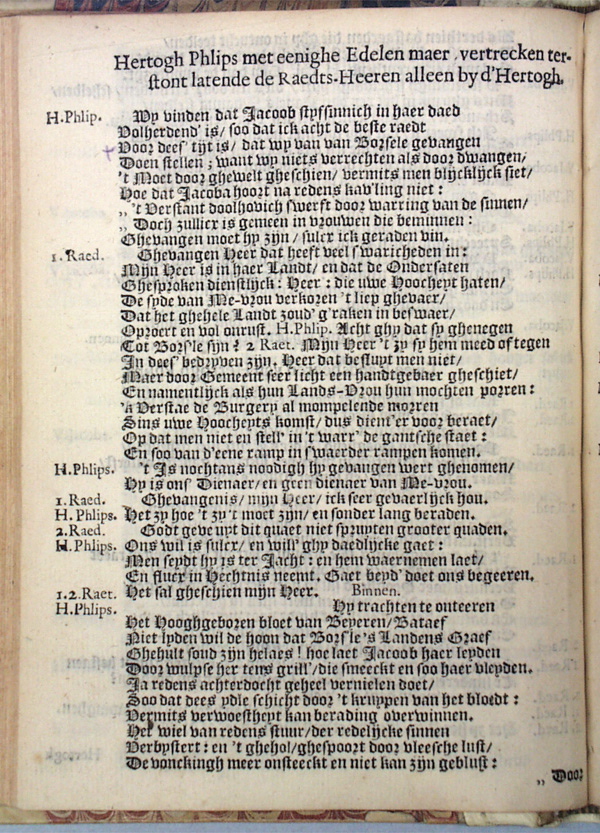 Hertogh Phlips met eenighe Edelen maer vertrecken ter-
stont latende de Raedts-Heeren alleen by d'Hertogh.
H.Phlip. Wy vinden dat Jacoob styfsinnich in haer daed
Volherdend' is/ soo dat ick acht de beste raedt
Voor dees' tijt is/ dat wy van van Borsele gevangen
Doen stellen; want wy niets verrechten als door dwangen/
't Moet door ghewelt gheschien/ vermits men blijcklijck siet/
Hoe dat Jacoba hoort na redens kav'ling niet:
,, 't Verstant doolhovich swerft door warring van de sinnen/
,, Doch zullicx is gemeen in vrouwen die beminnen:
Ghevangen moet hy zijn/ sulcx ick geraden vin.
1. Raed. Ghevangen Heer dat heeft veel swaricheden in:
Mijn Heer is in haer Landt/ en dat de Ondersaten
Ghesproken dienstlijck: Heer: die uwe Hoocheyt haten/
De syde van Me-vrou verkoren 't liep ghevaer/
Dat het ghehele Landt zoud' g'raken in beswaer/
Oproert en vol onrust. H.Phlip. Acht ghy dat sy ghenegen
Tot Bors'le sijn? 2 Raet. Mijn Heer 't zy sy hem meed of tegen
In dees' bedryven zijn. Heer dat besluyt men niet/
Maer door Gemeent seer licht een handtgebaer gheschiet/
En namentlijck als hun Lands-Vrou hun mochten porren:
'k Verstae de Burgery al mompelende morren
Sins uwe Hoocheyts komst/ dus dient'er voor beraet/
Op dat men niet en stell' in 't warr' de gantsche staet:
En soo van d'eene ramp in swaerder rampen komen.
H.Phlips. 't Is nochtans noodigh hy gevangen wert ghenomen/
Hy is ons' Dienaer/ en geen dienaer van Me-vrou.
1. Raed. Ghevangenis/ mijn Heer/ ick seer gevaerlijck hou.
H. Phlips. Het zy hoe 't zy 't moet zijn/ en sonder lang beraden.
2. Raed. Godt geve uyt dit quaet niet spruyten grooter quaden.
H.Phlips. Ons wil is sulcx/ en will' ghy daedlijcke gaet:
Men seydt hy is ter Jacht: en hem waernemen laet/
En flucx in Hechtnis neemt. Gaet beyd' doet ons begeeren.
1.2.Raet. Het sal gheschien mijn Heer. Binnen.
H.Phlips. Hy trachten te onteeren
Het Hooghgeboren bloet van Beyeren/ Bataef
Niet lyden wil de hoon dat Bors'le 's Landens Graef
Ghehult soud zijn helaes! hoe laet Jacoob haer leyden
Door wulpse her tens grill'/ die smeeckt en soo haer vleyden.
Ja redens achterdocht geheel vernielen doet/
Soo dat dees ydle schicht door 't kruypen van het bloedt:
Vermits verwoestheyt kan berading overwinnen.
Het wiel van redens stuur/ der redelycke sinnen
Verbystert: en 't ghehol/ ghespoort door vleesche lust/
De vonckingh meer onsteeckt en niet kan zijn geblust:
,, Door